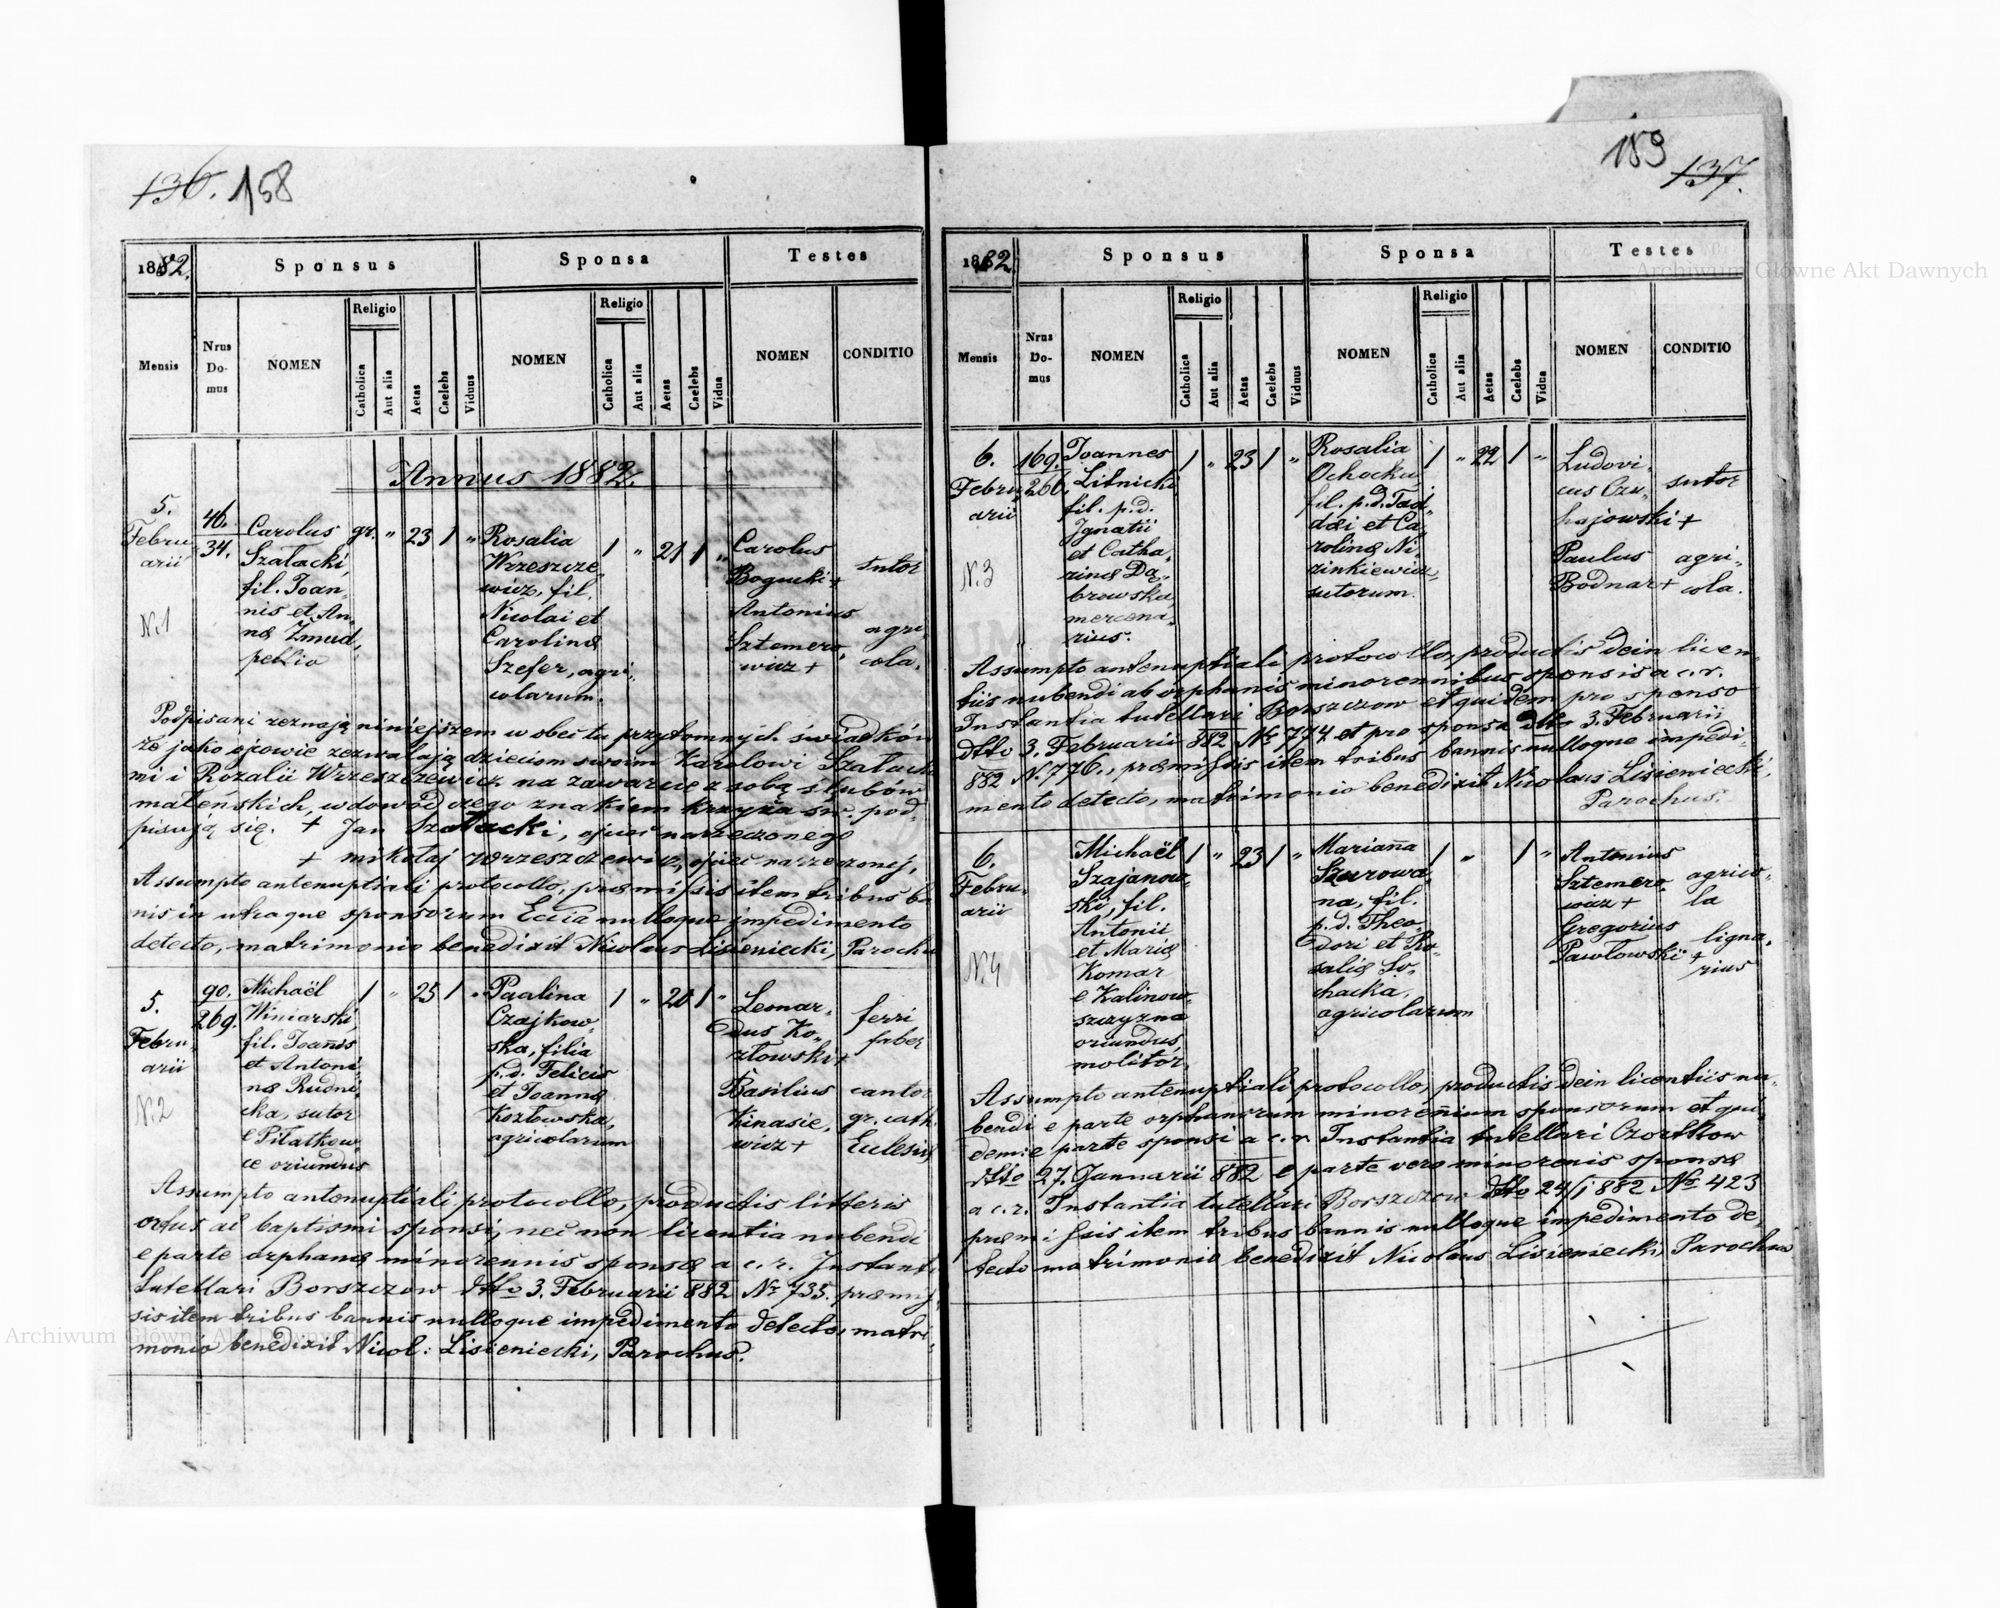 136. 158
1882.
Sponsus
Sponsa
Testes
Mensis
Nrus Do-mus
NOMEN
Religio
Catholica
Aut alia
Aetas
Caelebs
Viduus
NOMEN
Religio
Catholica
Aut alia
Aetas
Caelebs
Vidua
NOMEN
CONDITIO
Annus 1882.
5.
Febru
arii
N.1
46.
34.
Carolus
Szatacki,
fil. Joan-
nis et An-
næ Zmud,
gr. " 23 1 "
Rosalia
Wrzeszcze
wicz, fil.
Nicolai et
Carolinæ
Szefer, agri-
colarum.
1 " 21 1 "
Carolus
Bogucki +
Antonius
Sztemero
wicz +
sutor
agri-
cola.
Podpisani zeznają niniejszem w obec tu przytomnych świadków
że jako ojcowie zezwalają dzieciom swoim Karolowi Szatack
mi i Rozalii Wrzeszczewicz na zawarcie z sobą ślubów
małeńskich, w dowód czego znakiem krzyża św. pod-
pisują się. + Jan Szatacki, ojciec narzeczonego
+ Mikołaj Wrzeszczewicz, ojciec narzeczonej,
Assumpto antenuptiali protocollo, præmissis item tribus ba
nis in utraque sponsorum Ecclia nulloque impedimento
detecto, matrimonio benedixit Nicolaus Lisieniecki, Parochu
5.
Febru
arii
N.2
90.
269.
Michaël
Winiarski,
fil. Joanis
et Antoni-
næ Rudni
cka, sutor
e Piłatkow
ce oriundus
1 " 25 1 "
Paulina
Czajkow-
ska, filia
p.d. Felicis
et Joannæ
Kozłowska,
agricolarum
1 " 20 1 "
Leonar-
dus Ko-
złowski +
Basilius
Kinasie,
wicz +
ferri
faber
cantor
gr. cath.
Ecclesiæ
Assumpto antenuptiali protocollo, productis litteris
ortus ac baptismi sponsi, nec non licentia nubendi
e parte orphanæ minorennis sponsæ a c. r. Instanti
tutellari Borszczow dtto 3. Februarii 882 Nr 735. præmis
sis item tribus bannis nulloque impedimento detecto, matri-
monio benedixit Nicol: Lisieniecki, Parochus.
159 137.
1882.
Sponsus
Sponsa
Testes
Mensis
Nrus Do-mus
NOMEN
Religio
Catholica
Aut alia
Aetas
Caelebs
Viduus
NOMEN
Religio
Catholica
Aut alia
Aetas
Caelebs
Vidua
NOMEN
CONDITIO
6.
Febru
arii
N.3
169.
260.
Joannes
Litnicki
fil. p.d.
Ignatii
et Catha-
rinæ Dą-
browska,
mercena-
rius.
1 " 23 1 "
Rosalia
Ochocka,
fil. p.d. Tad-
dæi et Ca
rolinæ Ni-
zinkiewicz,
sutorum.
1 " 22 1 "
Ludovi-
cus Czu-
hajowski +
Paulus
Bodnar +
sutor
agri-
cola.
Assumpto antenuptiali protocollo, productis dein licen-
tiis nubendi ab orphanis minorennibus sponsis a c. r.
Instantia tutellari Borszczow et quidem pro sponso
dtto 3. Februarii 882 Nr 774 et pro sponsa dtto 3. Februarii
882 N. 776., præmissis item tribus bannis nulloque impedi-
mento detecto, matrimonio benedixit Nicolaus Lisieniecki,
Parochus.
6.
Febru-
arii
N.4
Michaël
Szajanow-
ski, fil.
Antonii
et Mariæ
Komar
e Kalinow-
szczyzna
oriundus,
molitor.
1 " 23 1 "
Marianna
Szurowa
na, fil.
p.d. Theo-
dori et Ro-
saliæ So-
chacka,
agricolarum
1 " 1 "
Antonius
Sztemero
wicz +
Gregorius
Pawłowski +
agrico-
la
ligna-
rius
Assumpto antenuptiali protocollo, productis dein licentiis nu-
bendi e parte orphanorum minorenium sponsorum et qui-
dem e parte sponsi a c. r. Instantia tutellari Czortkow
dtto 27. Januarii 882 e parte vero minorenis sponsæ
a c. r. Instantia tutellari Borszczow dtto 24/1 882 Nr 423
præmissis item tribus bannis nulloque impedimento de-
tecto matrimonio benedixit Nicolaus Lisieniecki, Parochus
Archiwum Główne Akt Dawnych
Archiwum Główne Akt Dawnych